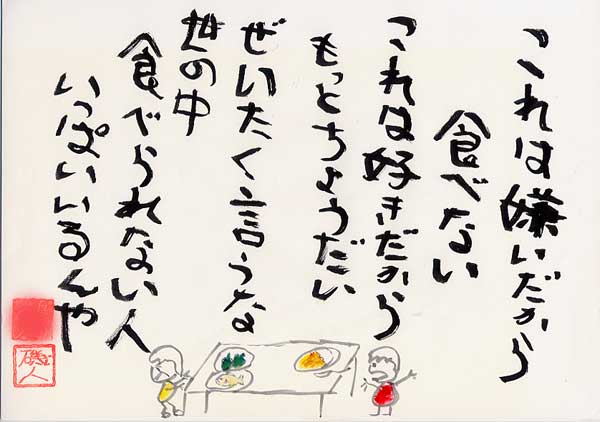 これは嫌いだから
食べない
これは好きだから
もっとちょうだい
ぜいたく言うな
世の中
食べられない人
いっぱいいるんや